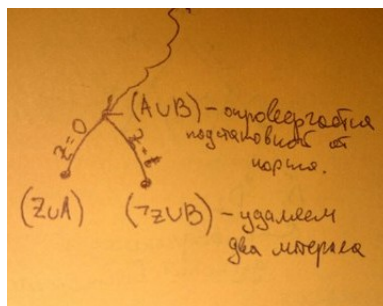 (A∪B) – опровергается
подстановкой от
корня.
z=0
z=1
(z∪A) (¬z∪B) – удаляем
два литерала